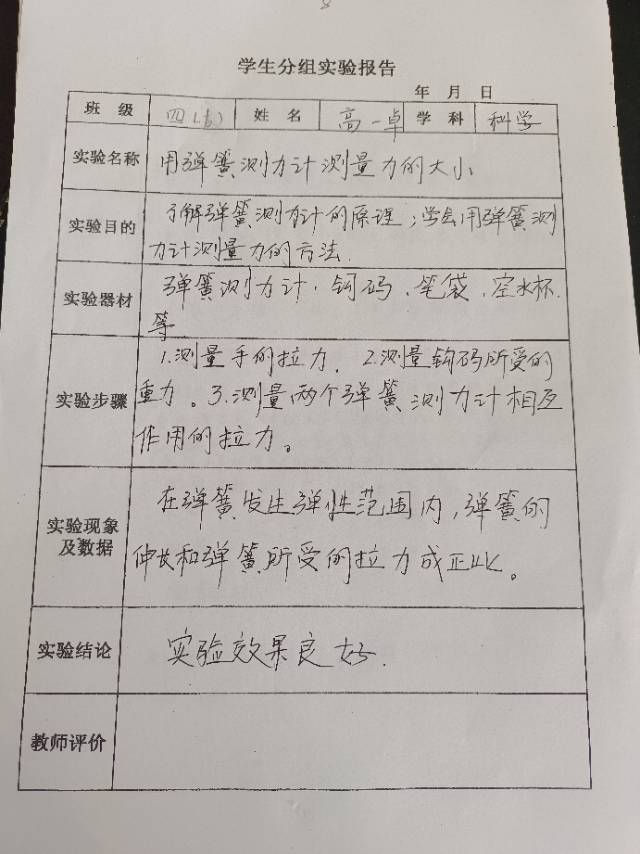 学生分组实验报告
年 月 日
班 级 四(五) 姓 名 高一卓 学 科 科学
实验名称 用弹簧测力计测量力的大小
实验目的 了解弹簧测力计的原理；学会用弹簧测
力计测量力的方法.
实验器材 弹簧测力计、钩码、笔袋、空水杯.
等
实验步骤 1.测量手的拉力. 2.测量钩码所受的
重力。3.测量两个弹簧测力计相互
作用的拉力。
实验现象及数据 在弹簧发生弹性范围内，弹簧的
伸长和弹簧所受的拉力成正比。
实验结论 实验效果良好.
教师评价